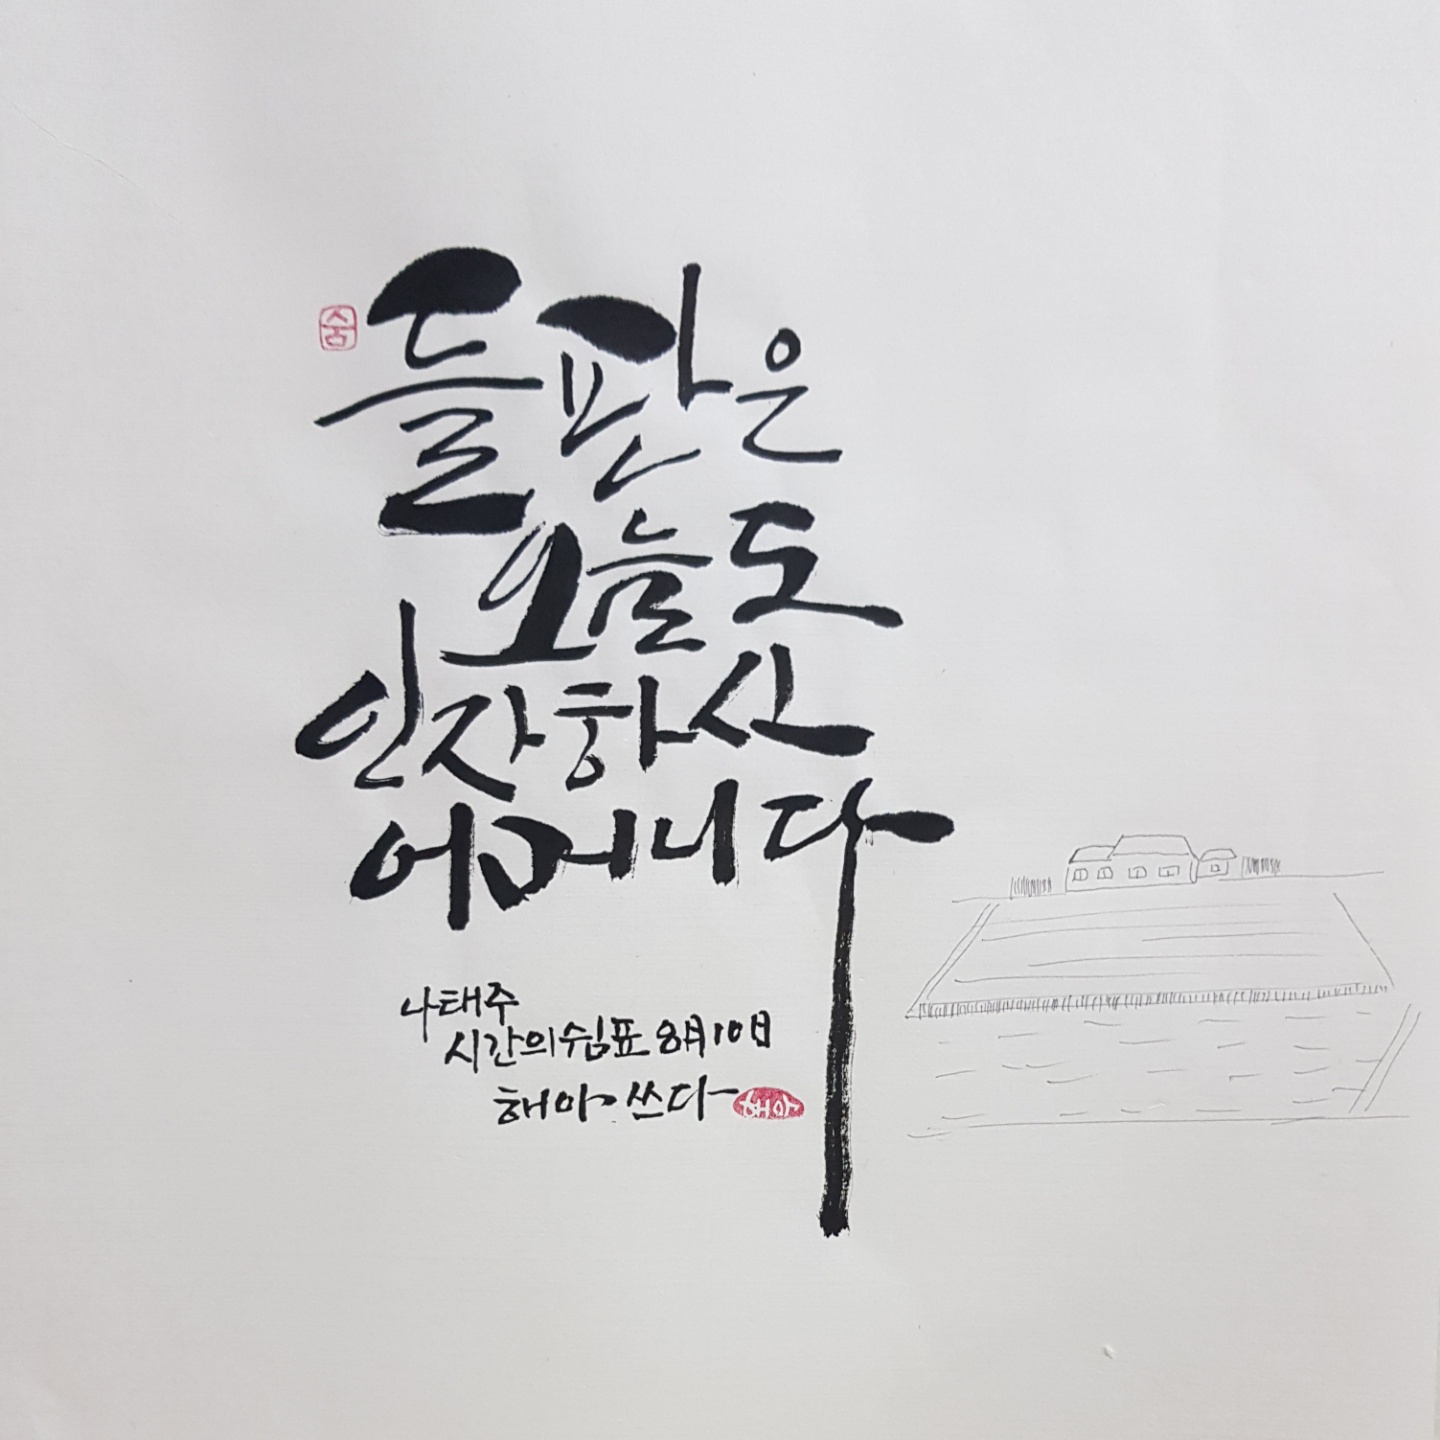 숨
들판은
오늘도
인자하신
어머니다
나태주
시간의 쉼표 8月10日
해아 쓰다
해아